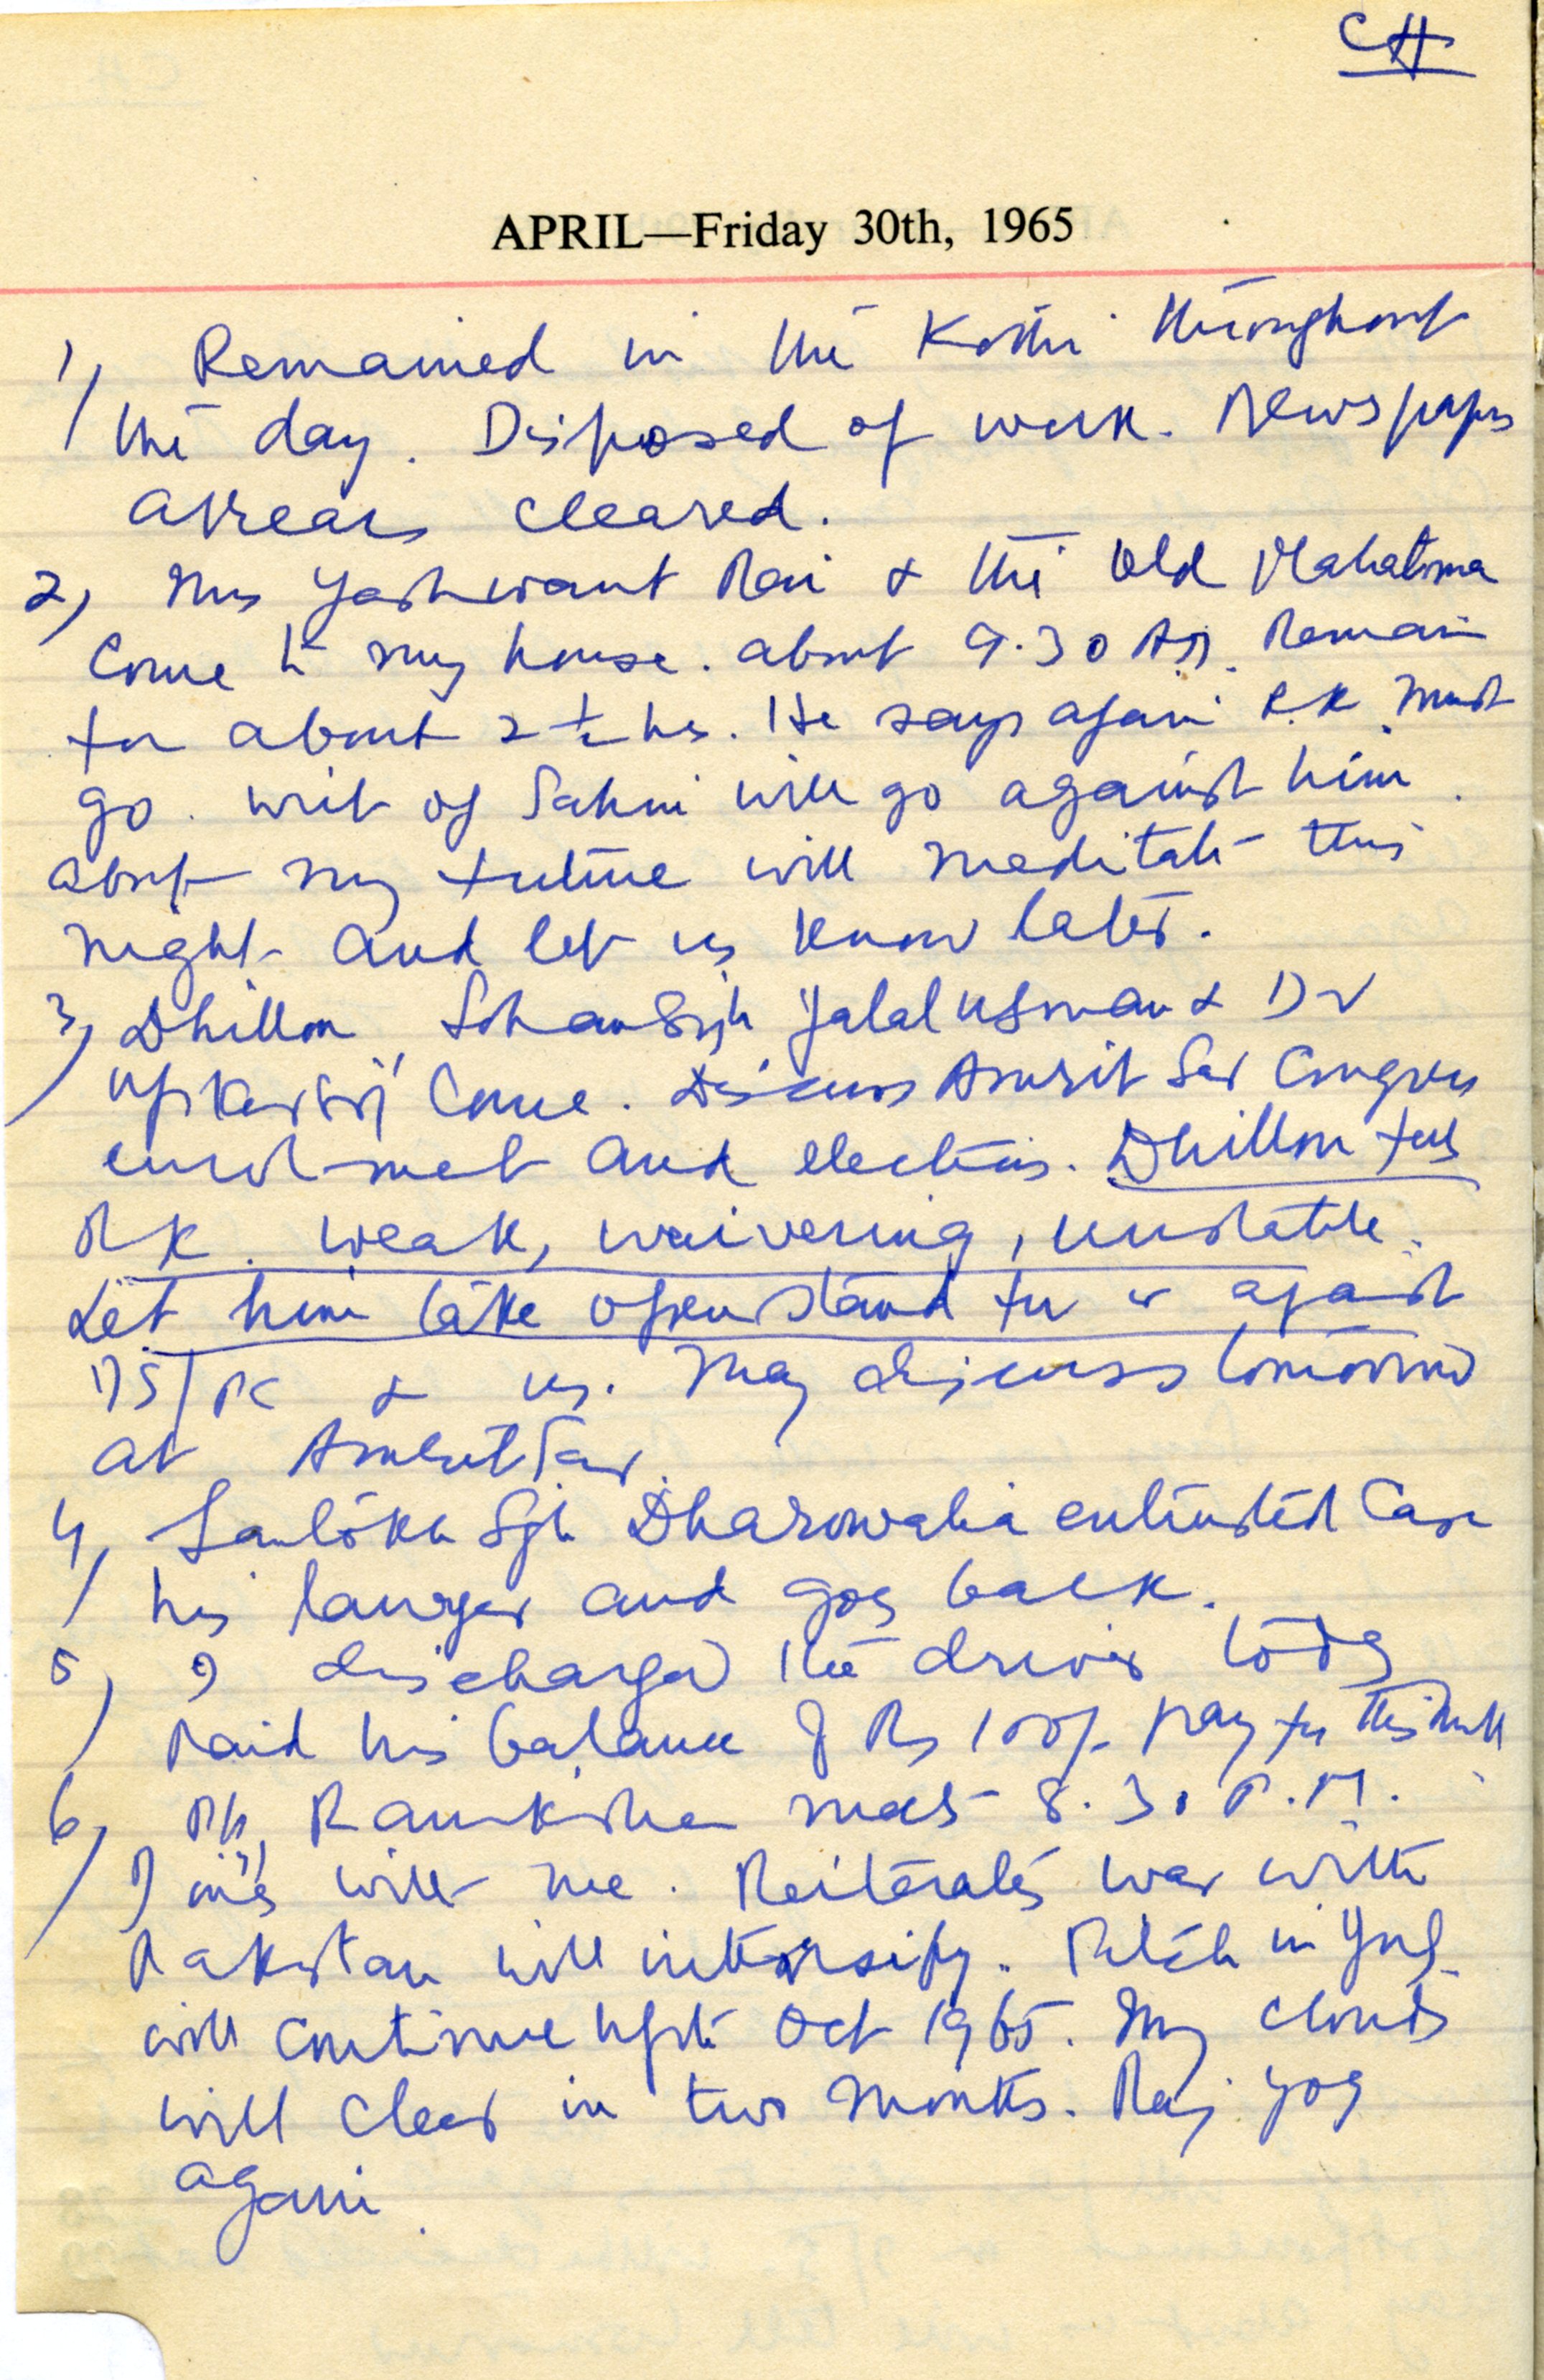 CH
APRIL—Friday 30th, 1965
1) Remained in the Kothi throughout
the day. Disposed of work. Newspapers
arrears cleared.
2) Mrs Yashwant Rai & the Old Mahatma
come to my house. about 9.30 AM. Remain
for about 2½ hrs. He says again R.K must
go. writ of Sahni will go against him.
about my future will meditate this
night and let us know later.
3) Dhillon, Sohan Sigh Jalal Usman & Dr
Upkar Sigh come. Discuss Amrit Sar Congress
enrolment and elections. Dhillon feels
RK. weak, waivering, unstable.
Let him take open stand for or against
DS/PC & us. May discuss tomorrow
at Amrit Sar.
4) Santokh Sgh Dharowalia entrusted Case
his lawyer and goes back.
5) I discharged the driver today
Paid his balance of Rs 100/- pay for this month
6) Pt, Ramkishen meets 8.30 P.M.
Dines with me. Reiterates war with
Pakistan will intensify. in
will continue upto Oct 1965. My clouds
will clear in two months. Raj yog
again.